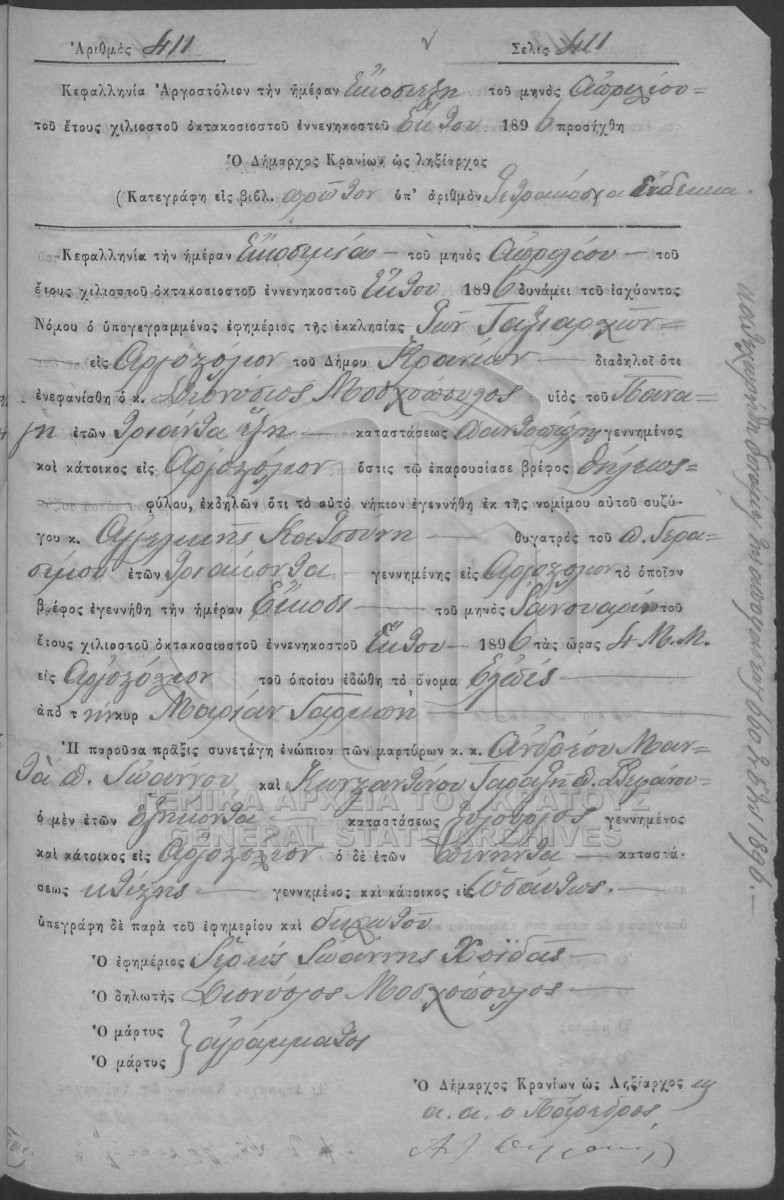 Ἀριθμὸς 411
Σελὶς 411
Κεφαλληνία Ἀργοστόλιον τὴν ἡμέραν Εἴκοσι ἕξη τοῦ μηνὸς Ἀπριλίου
τοῦ ἔτους χιλιοστοῦ ὀκτακοσιοστοῦ ἐννενηκοστοῦ Ἕκτου 1896 προσήχθη
Ὁ Δήμαρχος Κρανίων ὡς ληξίαρχος
(Κατεγράφη εἰς βιβλ. πρῶτον ὑπ' ἀριθμὸν Τετρακόσια ἕνδεκα.
Κεφαλληνία τὴν ἡμέραν Εἴκοσι μία τοῦ μηνὸς Ἀπριλίου τοῦ
ἔτους χιλιοστοῦ ὀκτακοσιοστοῦ ἐννενηκοστοῦ Ἕκτου 1896 δυνάμει τοῦ ἰσχύοντος
Νόμου ὁ ὑπογεγραμμένος ἐφημέριος τῆς ἐκκλησίας Τῶν Ταξιαρχῶν
εἰς Ἀργοστόλιον τοῦ Δήμου Κρανίων διαδηλοῖ ὅτι
ἐνεφανίσθη ὁ κ. Διονύσιος Μοσχόπουλος υἱὸς τοῦ Πανα-
γῆ ἐτῶν τριάντα ἕξη καταστάσεως παντοπώλης γεννημένος
καὶ κάτοικος εἰς Ἀργοστόλιον ὅστις τῷ ἐπαρουσίασε βρέφος θήλεως
φύλου, ἐκδηλῶν ὅτι τὸ αὐτὸ νήπιον ἐγεννήθη ἐκ τῆς νομίμου αὐτοῦ συζύ-
γου κ. Ἀγγελικῆς Κατσούνη θυγατρὸς τοῦ π. Γερα-
σίμου ἐτῶν τριάκοντα γεννημένης εἰς Ἀργοστόλιον τὸ ὁποῖον
βρέφος ἐγεννήθη τὴν ἡμέραν Εἴκοσι τοῦ μηνὸς Ἰανουαρίου τοῦ
ἔτους χιλιοστοῦ ὀκτακοσιοστοῦ ἐννενηκοστοῦ Ἕκτου 1896 τὰς ὥρας 4 Μ.Μ.
εἰς Ἀργοστόλιον τοῦ ὁποίου ἐδώθη τὸ ὄνομα Ἐλπὶς
ἀπὸ τὴν κυρ Μαρίαν
Ἡ παροῦσα πρᾶξις συνετάγη ἐνώπιον τῶν μαρτύρων κ. κ. Ἀνδρέου Μαν-
τᾶ π. Ἰωάννου καὶ Κωνσταντίνου π. Στεφάνου
ὁ μὲν ἐτῶν ἑξήκοντα καταστάσεως ξυλουργὸς γεννημένος
καὶ κάτοικος εἰς Ἀργοστόλιον ὁ δὲ ἐτῶν πενῆντα καταστά-
σεως κτίστης γεννημένος καὶ κάτοικος εἰς ὡσαύτως.
ὑπεγράφη δὲ παρὰ τοῦ ἐφημερίου καὶ δηλωτοῦ
Ὁ ἐφημέριος Ἱερεὺς Ἰωάννης Χοϊδᾶς
Ὁ δηλωτὴς Διονύσιος Μοσχόπουλος
Ὁ μάρτυς
Ὁ μάρτυς } ἀγράμματοι
Ὁ Δήμαρχος Κρανίων ὡς Ληξίαρχος
α.α. ὁ Πάρεδρος
ΓΕΝΙΚΑ ΑΡΧΕΙΑ ΤΟΥ ΚΡΑΤΟΥΣ
GENERAL STATE ARCHIVES